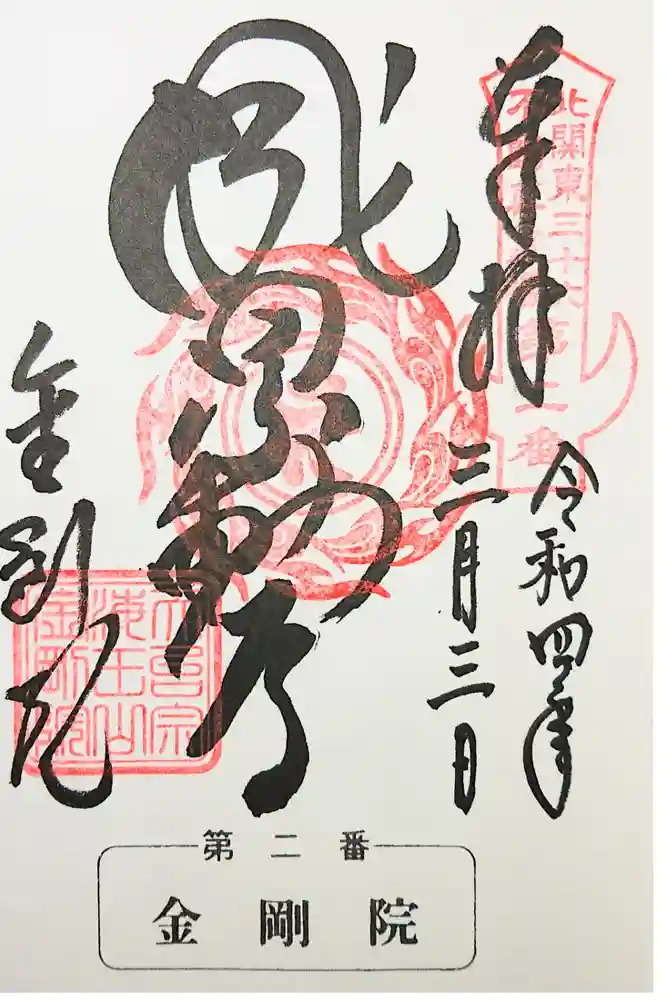 北関東三十六
不動尊
第二番
奉拝
令和四年
三月三日
動尊
金剛院
天台宗
海王山
金剛院
第二番
金剛院